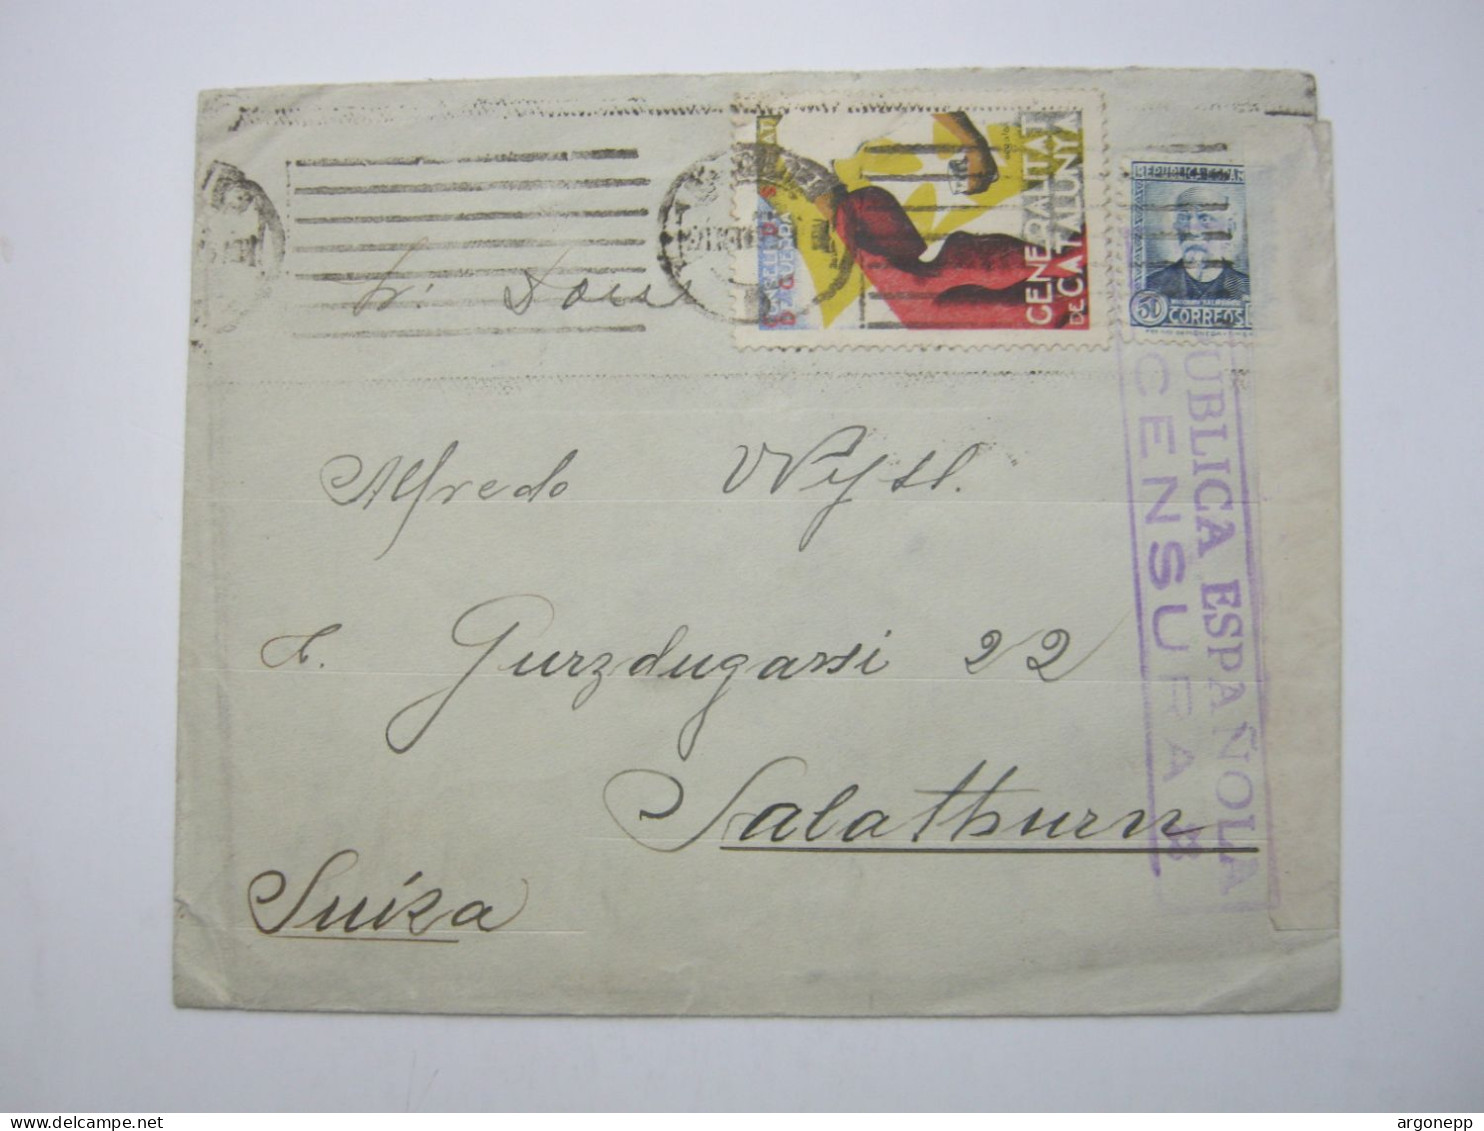 GENERALITAT
DE CATALUNYA
REPUBLICA ESPAÑ
50 CORREOS
Alfredo Wyss.
Gurzdugassi 22
Salathurn
Suiza
PUBLICA ESPAÑOLA
CENSURA
argonepp